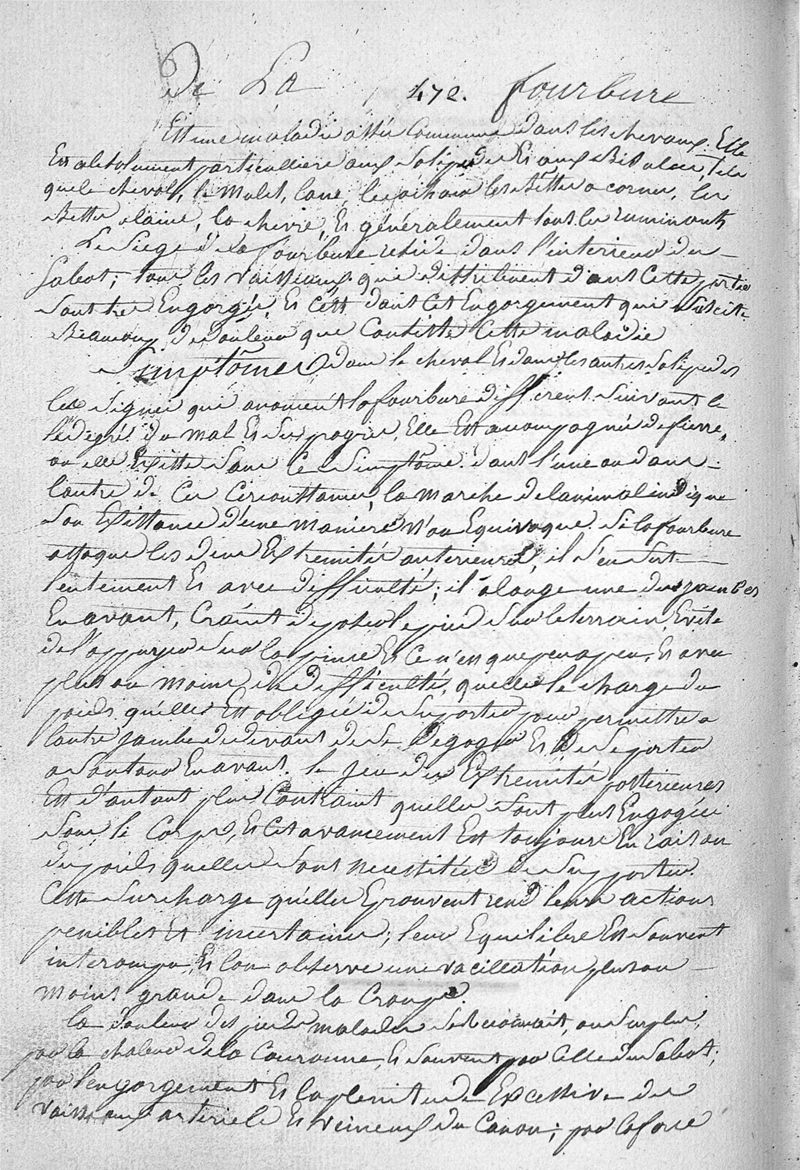 De La 472. fourbure
Est une maladie assés Commune dans les chevaux. Elle
Est absolument particulliere aux Solipedes Es aux Bisulces, Tels
que le cheval, le Mulet, l'ane, les bettes a corne, les
Bettes a laine, la chevre, Es généralement tous les ruminants
Le Siege de la fourbure reside dans l'interieur du
Sabot; tous les vaisseaux qui se distribuent dans Cette partie
Sont tres Engorgés, Es C'est dans Cet Engorgement qui Suscite
Beaucoup de douleur que Consiste Cette maladie
Simptômes dans le cheval Es dans les autres Solipedes
les Signes qui anoncent la fourbure different Suivant le
dégré du mal Es Ses progres, Elle Est accompagnée de fievre,
ou elle Existe Sans Ce Simptôme. dans l'une ou dans
l'autre de Ces Circonstances, la marche de l'animal indique
Son Existance d'une manière N'on Equivoque. Si la fourbure
attaque les deux Extremités anterieures, il S'en Sert
lentement Es avec difficulté; il alonge une des jambes
En avant, Craint de poser le pied Sur le terrain, Evite
de l'appuyer Sur la pince Es Ce n'est que peu a peu, Es avec
plus ou moins de difficulté, qu'elle Se charge du
poids qu'elle Est obligée de Suporter pour permettre a
l'autre jambe de devant de Se Degager Es De Se porter
a Son tour En avant. le jeu des Extremités posterieures
Est d'autant plus Contraint quelles Sont plus Engagées
Sous le Corps, Es Cet avancement Est toujours En raison
du poids quelles Sont necessitées De Supporter.
Cette Surcharge qu'elles Eprouvent rend leurs actions
penibles Et incertaines; leur Equilibre Est Souvent
interompu, Es l'on observe une vacillation plus ou
moins grande dans la Croupe.
la douleur des pieds malades Se Reconnait, au Surplus,
par la chaleur de la Couronne, Es Souvent par Celle du Sabot;
par l'engorgement Es la plenitude Excessive des
vaisseaux arteriels Es veineux du Canon; par la force